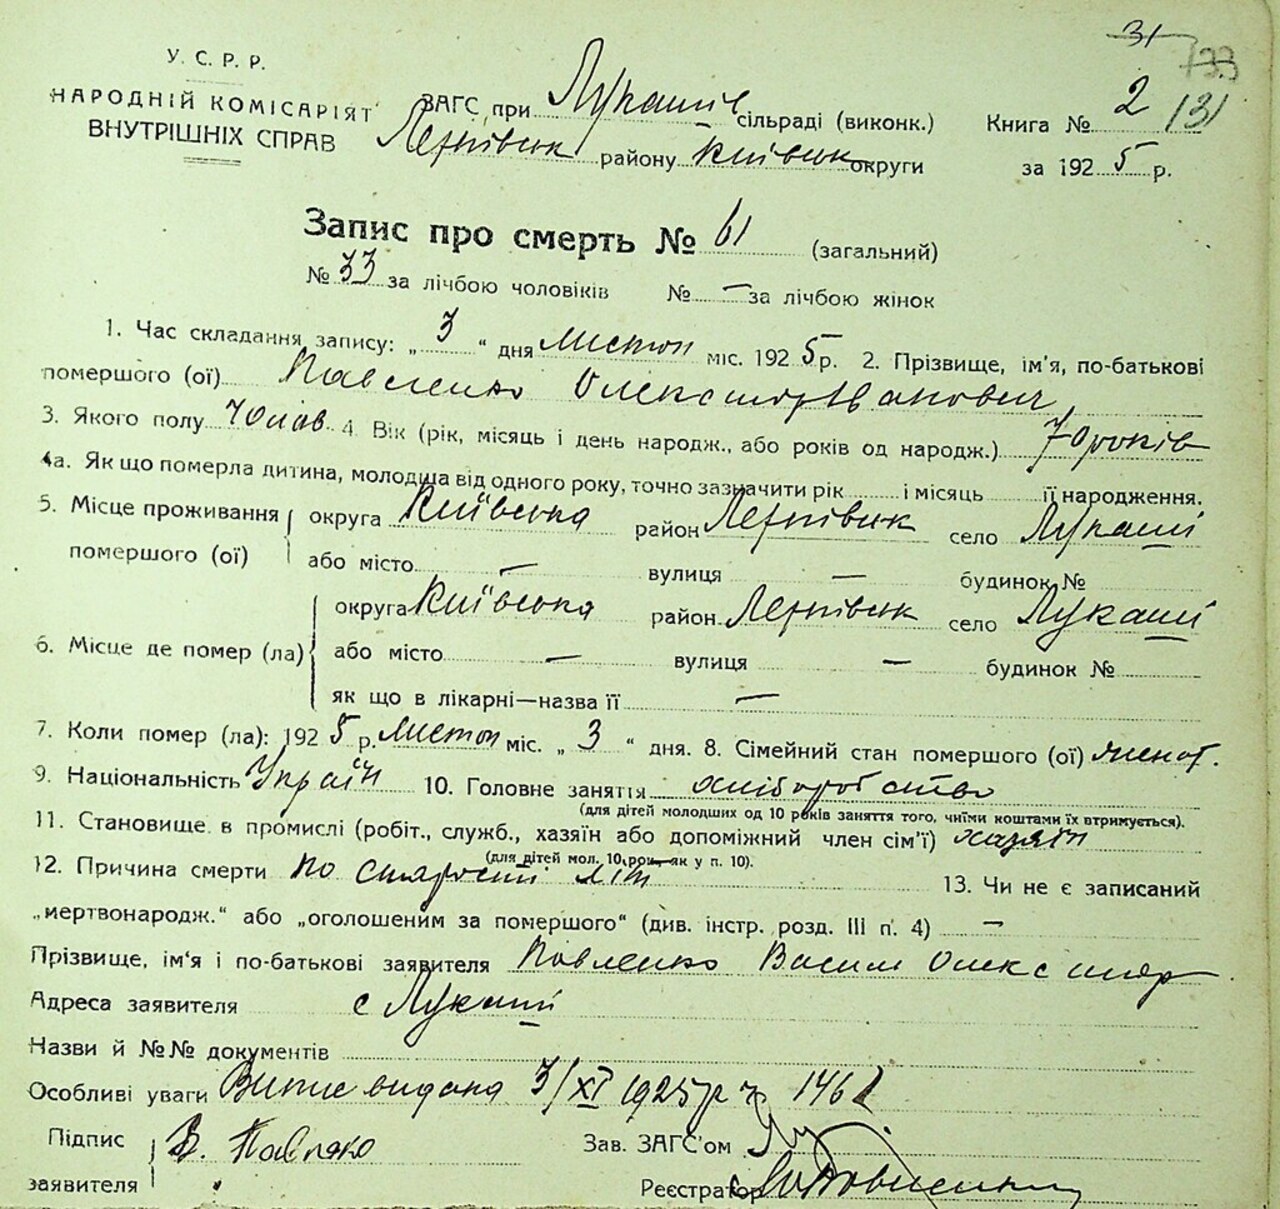 31
133
У. С. Р. Р.
НАРОДНІЙ КОМІСАРІЯТ
ВНУТРІШНІХ СПРАВ
ЗАГС при Лукаші сільраді (виконк.)
районy Київськ округи
Книга № 2 131
за 1925 р.
Запис про смерть № 61 (загальний)
№ 33 за лічбою чоловіків № — за лічбою жінок
1. Час складання запису: „ 3 “ дня листоп міс. 1925 р. 2. Прізвище, ім'я, по-батькові
помершого (ої) Павленко Олександр Іванович
3. Якого полу Чолов. 4. Вік (рік, місяць і день народж., або років од народж.) 70 років
4а. Як що померла дитина, молодша від одного року, точно зазначити рік і місяць її народження.
5. Місце проживання округа Київська район село Лукаші
помершого (ої) або місто — вулиця — будинок №
округа Київська район село Лукаші
6. Місце де помер (ла) або місто — вулиця — будинок №
як що в лікарні—назва її —
7. Коли помер (ла): 1925 р. листоп міс. „ 3 “ дня. 8. Сімейний стан помершого (ої) женат.
9. Національність Україн 10. Головне заняття хліборобство
(для дітей молодших од 10 років заняття того, чиїми коштами їх втримується).
11. Становище в промислі (робіт., служб., хазяїн або допоміжний член сім'ї) хазяїн
(для дітей мол. 10 рок. як у п. 10).
12. Причина смерти по старости літ 13. Чи не є записаний
„мертвонародж.“ або „оголошеним за помершого“ (див. інстр. розд. III п. 4) —
Прізвище, ім'я і по-батькові заявителя Павленко Васил Олександр
Адреса заявителя с Лукаші
Назви й №№ документів
Особливі уваги Витяг видана 3/XI 1925 р
Підпис В. Павленко Зав. ЗАГС'ом
заявителя Реєстратор